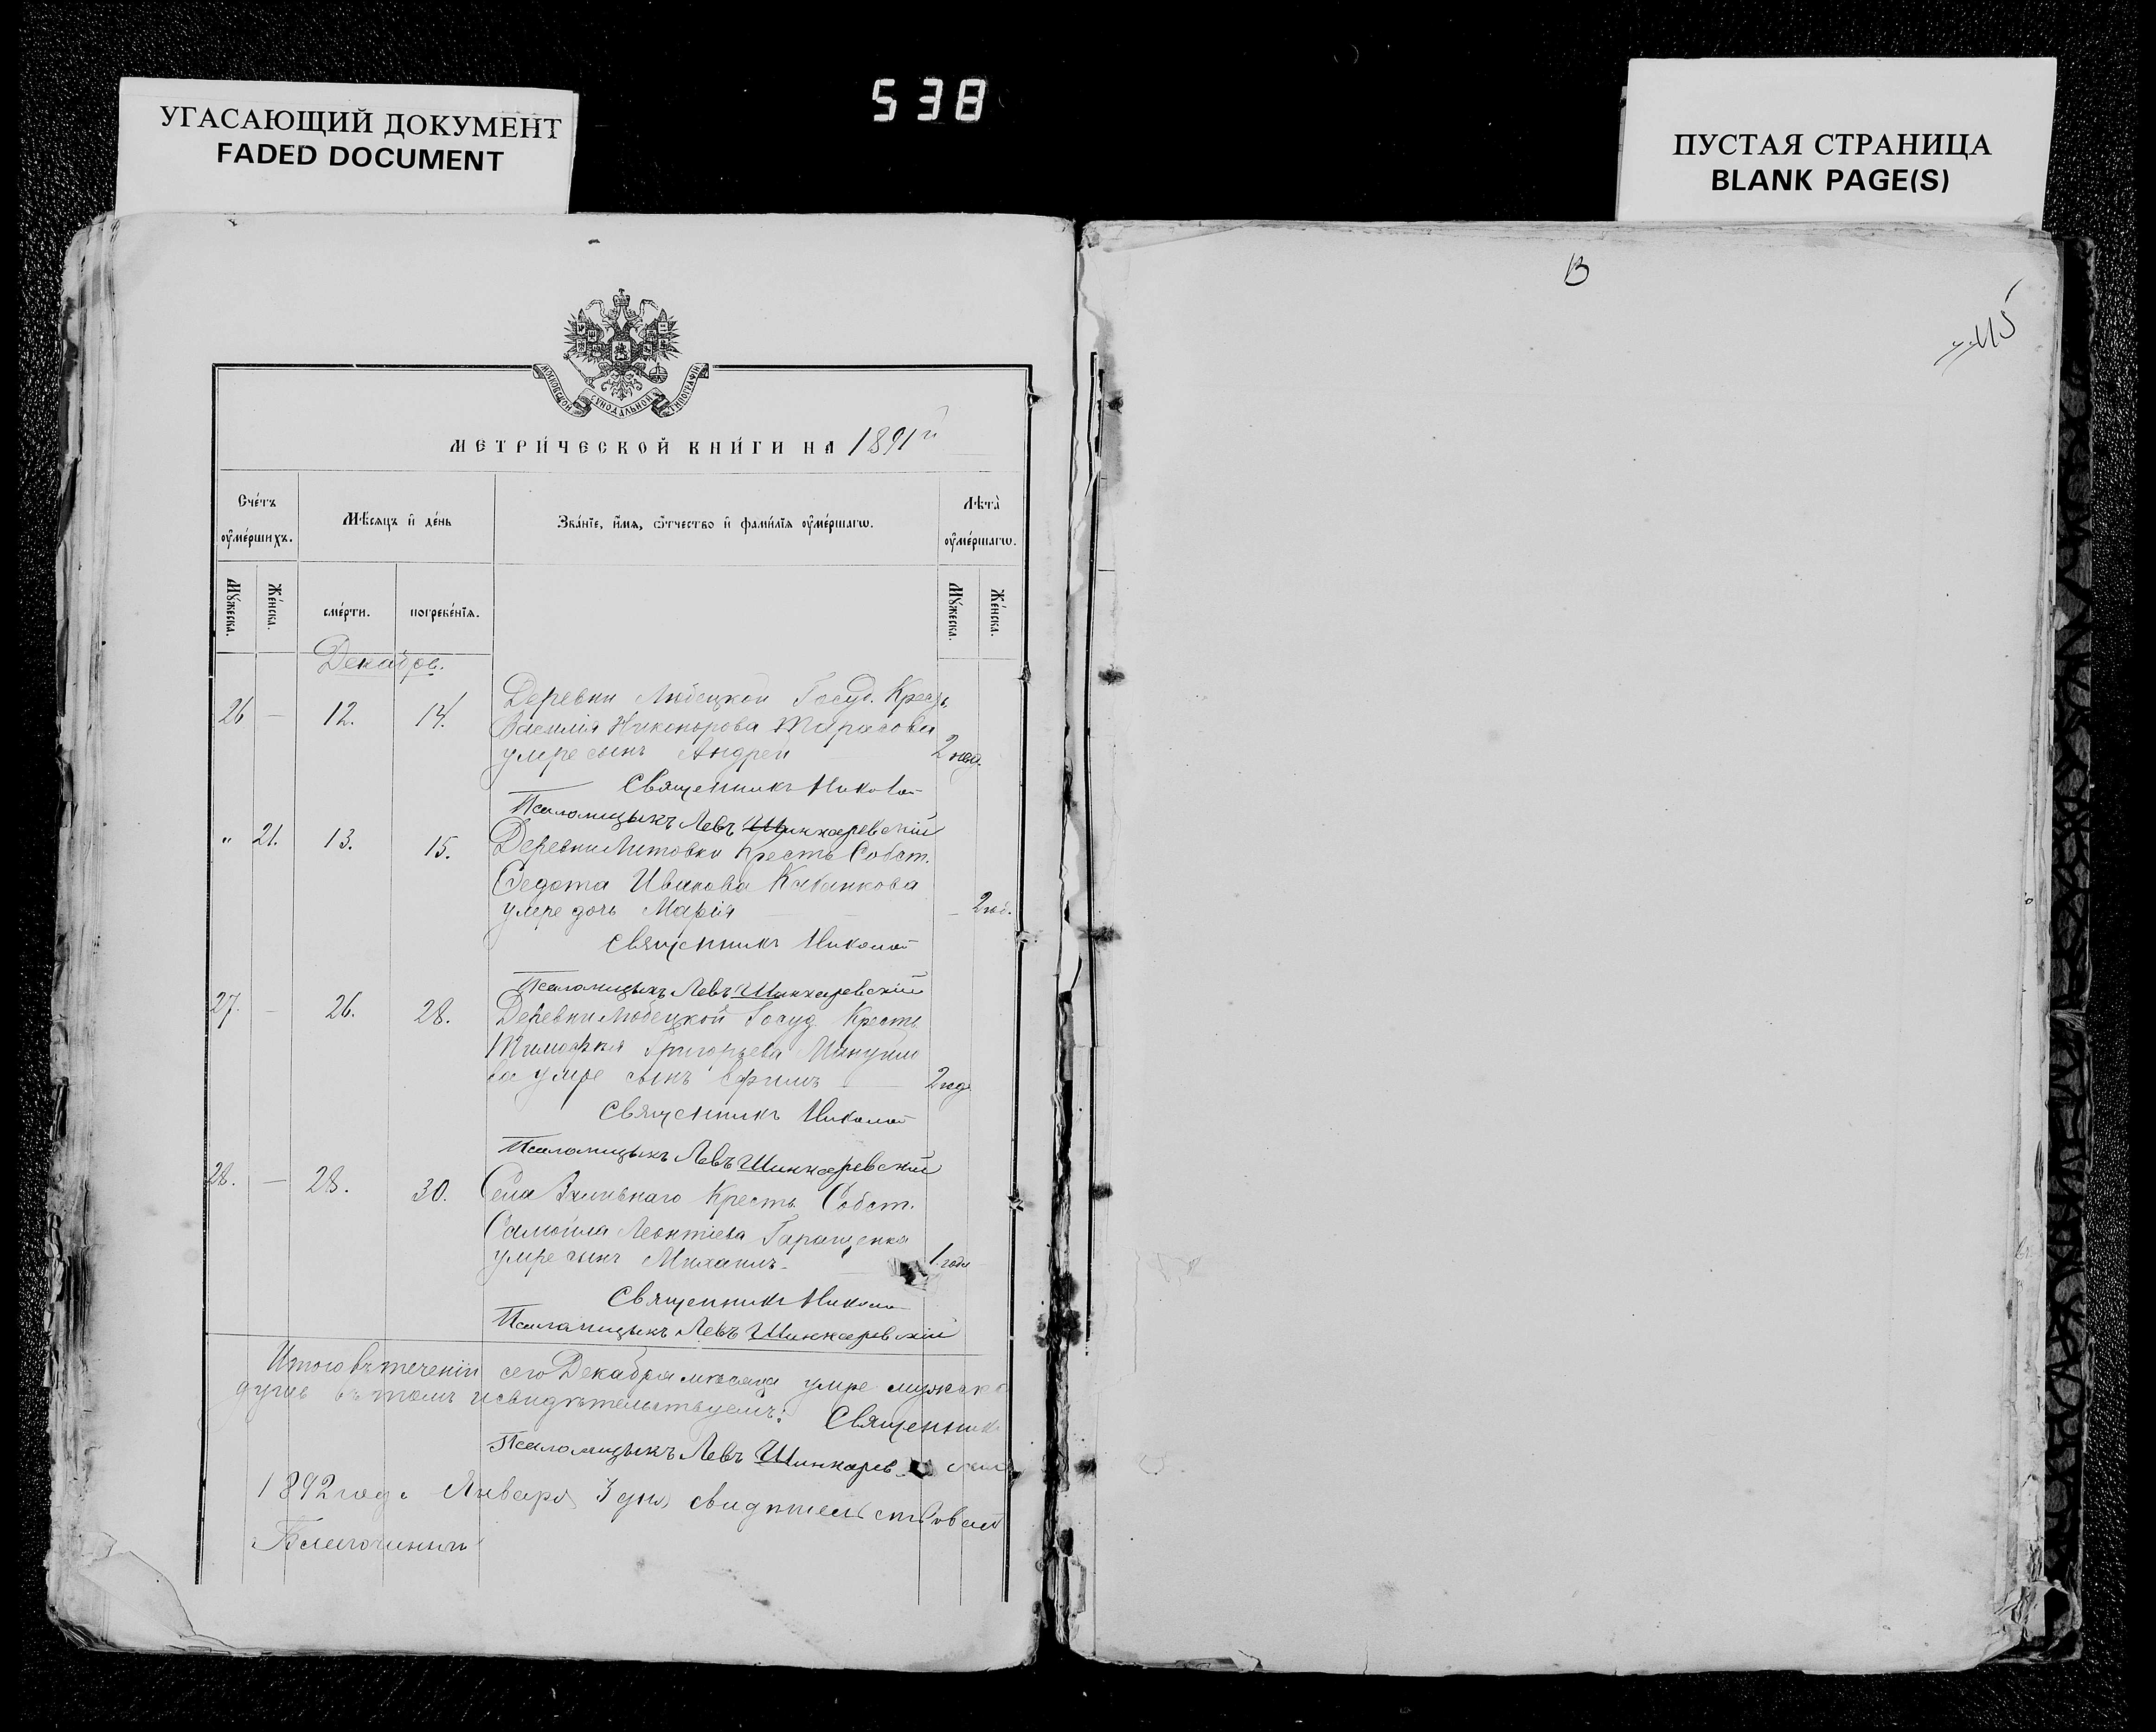 УГАСАЮЩИЙ ДОКУМЕНТ
FADED DOCUMENT
538
ПУСТАЯ СТРАНИЦА
BLANK PAGE(S)
МОСКОВСКОЙ СѴНОДАЛЬНОЙ ТИПОГРАФІИ
МЕТРИ́ЧЕСКОЙ КНИ́ГИ НА 1891й
Счётъ ᲂу҆ме́ршихъ.
Мѣ́сяцъ и҆ де́нь
Зва́нїе, и҆́мя, ѻ҆́тчество и҆ фами́лїя ᲂу҆ме́ршагѡ.
Лѣта̀ ᲂу҆ме́ршагѡ.
Мꙋ́жеска.
Же́нска.
сме́рти.
погребе́нїя.
Мꙋ́жеска.
Же́нска.
Декабрь.
26 — 12. 14. Деревни Любецкой Госуд. Крест.
Василія Никонорова Тарасова
умре сынъ Андрей 2 нед.
Священникъ Николай
Псаломщикъ Левъ Шинкаревскій
" 21. 13. 15. Деревни Литовки Кресть. Собст.
Федота Иванова
умре дочь Марія — — 2 год.
Священникъ Николай
Псаломщикъ Левъ Шинкаревскій
27. — 26. 28. Деревни Любецкой Госуд. Кресть.
Тимофея Григорьева Мануйло
ва умре сынъ Ефимъ — 2 год.
Священникъ Николай
Псаломщикъ Левъ Шинкаревскій
28. — 28. 30. Села Кресть. Собст.
Самойла Леонтіева Геращенка
умре сынъ Михаилъ — 1 года
Священникъ Николай
Псаломщикъ Левъ Шинкаревскій
Итого въ теченіи сего Декабря мѣсяца умре мужска
душъ въ томъ и свидѣтельствуемъ: Священник
Псаломщикъ Левъ Шинкарев
1892 года Января 3 дня свидѣтельствовал
Благочинный
В